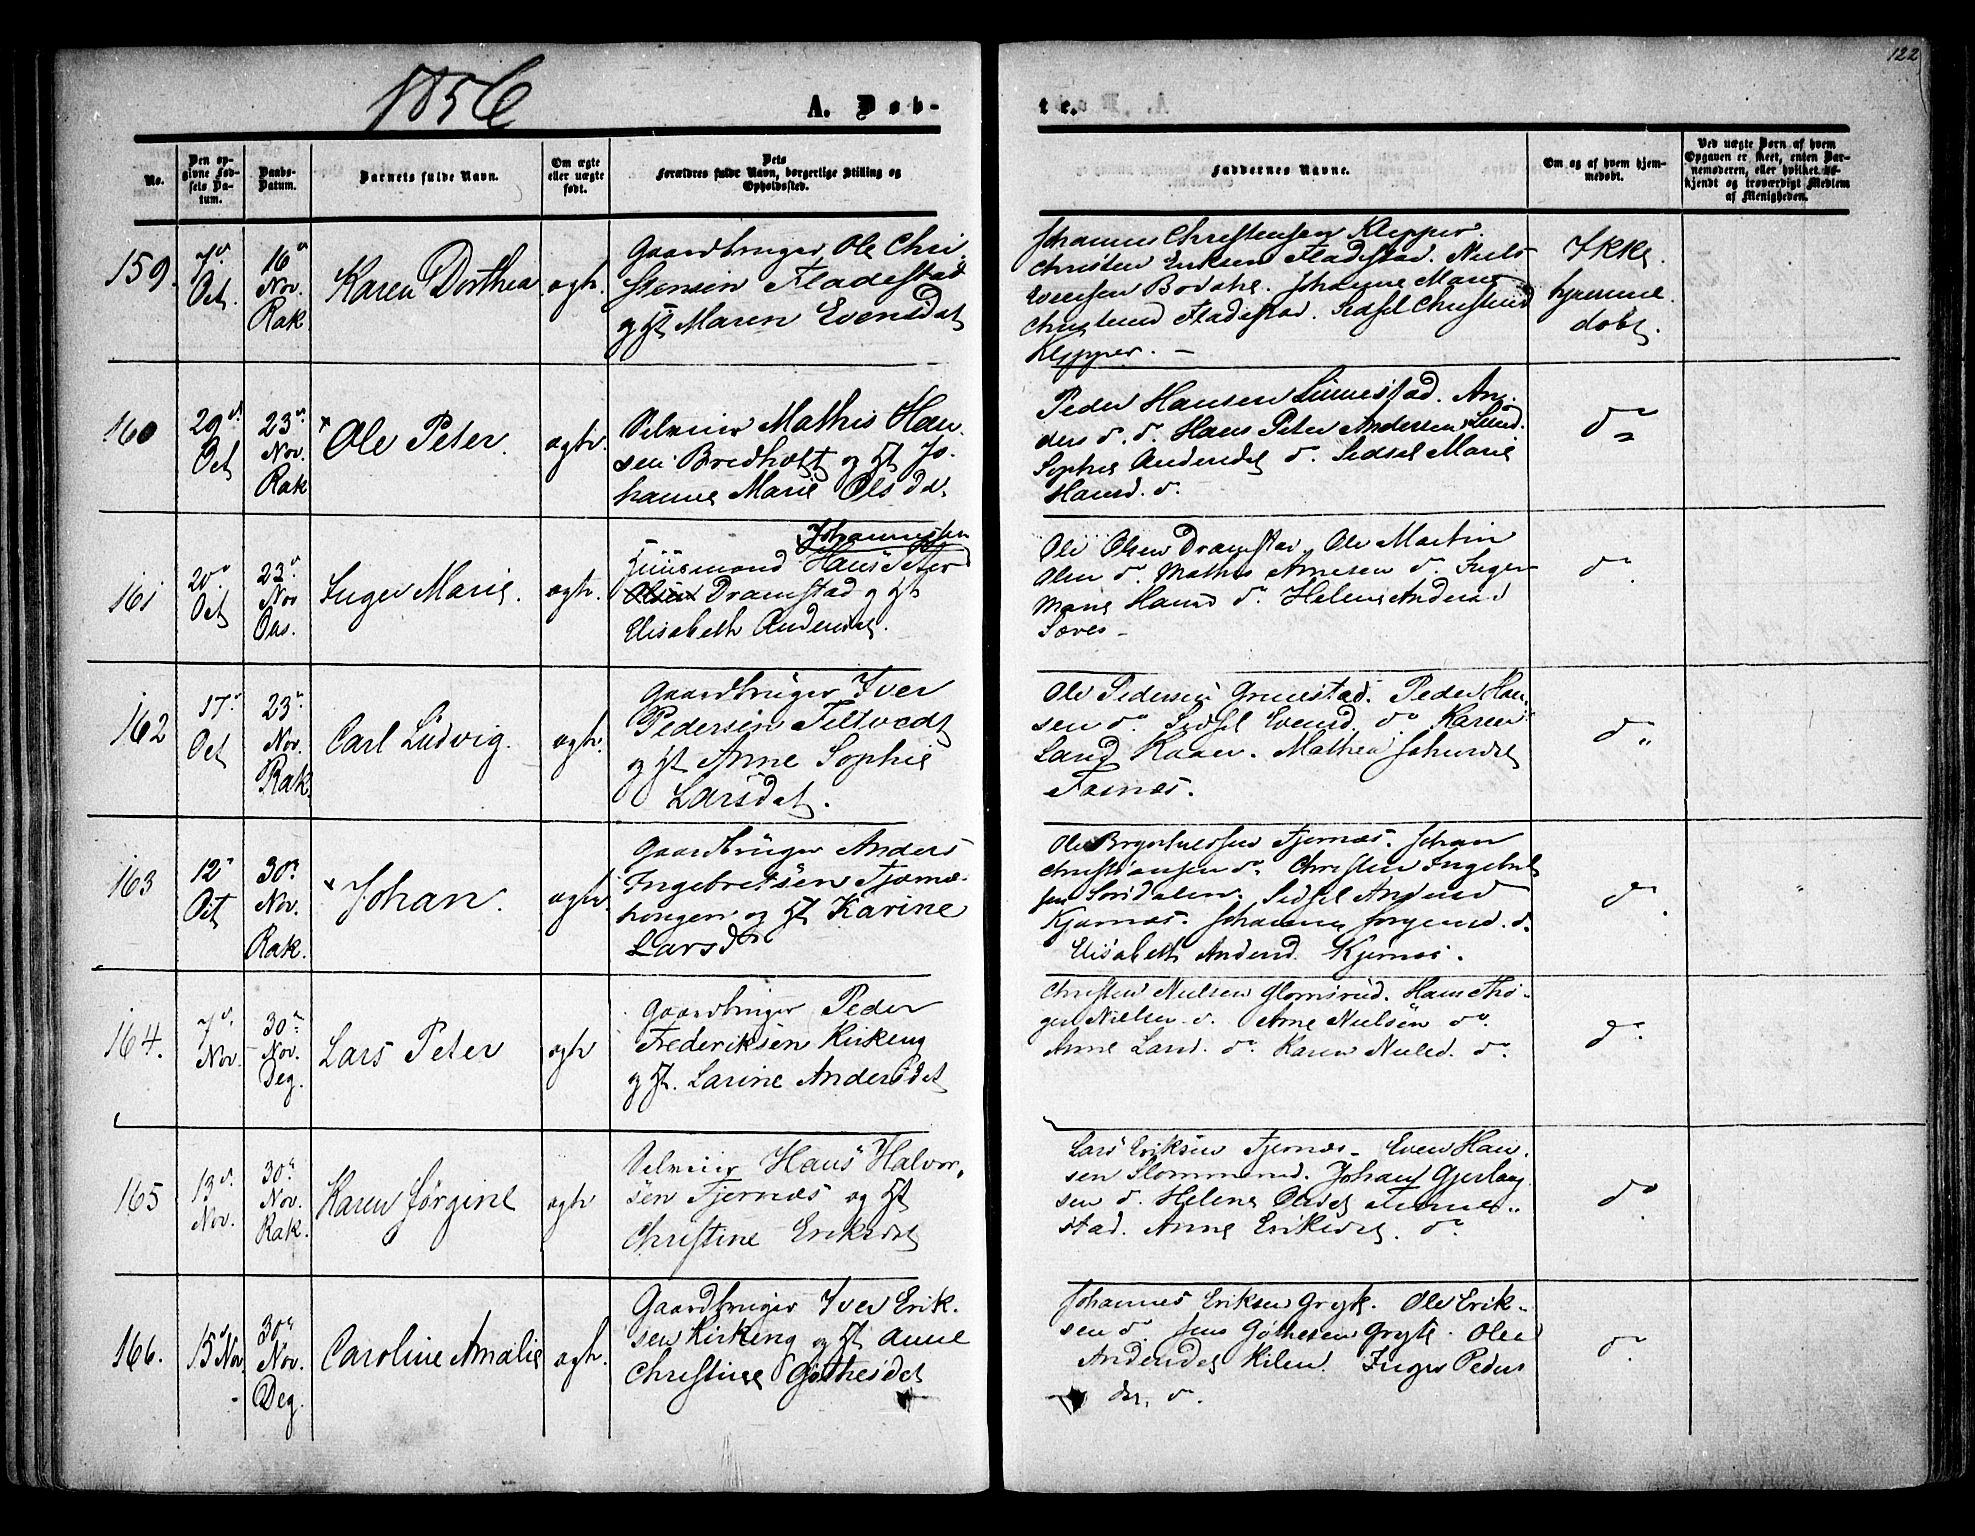 1856
A. Døb-
te.
122
No.
Den op-
givne Fød-
sels Da-
tum.
Daabs-
Datum.
Barnets fulde Navn.
Om ægte
eller uægte
født.
Dets
Forældres fulde Navn, borgerlige Stilling og
Opholdssted.
Faddernes Navne.
Om og af hvem hjem-
medøbt.
Ved uægte Børn af hvem
Opgaven er skeet, enten Bar-
nemoderen, eller hvilket be-
kjendt og troværdigt Medlem
af Menigheden.
159.
7de
Oct.
16de
Nov.
Rak
Karen Dorthea
ægte.
Gaardbruger Ole Chri-
stensen Fladestad
og H Maren Evensdat
Johannes Christensen Klepper.
Christen Eriksen Fladestad. Niels
Evensen Johanne Marie
Fladestad. Sidsel
Klepper. -
Ikke
hjemme
døbt.
160
29de
Oct
23de
Nov.
Rak
Ole Peter.
ægte.
Mathis Han-
sen Bredholt og H Jo-
hanne Marie Olsdr.
Peder Hansen Linnestad. An-
ders do. do. Hans Peter Andersen Lund.
Sophie Andersdat do. Sidsel Marie
Hansd. do.
do
161
20de
Oct
23de
Nov
Aas.
Inger Marie.
ægte.
Johannessen
Huusmand Hans Peter
Olsen Dramstad og H
Elisabeth Andersdat.
Ole Olsen Dramstad. Ole Martin
Olsen do. Mathis Arnesen do. Inger
Marie Hansd do. Helene Andersd
do.
162
17de
Oct
23de
Nov.
Rak.
Carl Ludvig.
ægte.
Gaardbruger Iver
Pedersen Tiltvedt
og H Anne Sophie
Larsdat.
Ole Pedersen Peder Han-
sen do. Sidsel Evensd. do Karen
Larsd Mathea
do
163
12te
Oct
30te
Nov.
Rak.
Johan.
ægte
Gaardbruger Anders
Ingebretsen Tjernæs-
hougen og H Karine
Larsdr
Ole Tjernæs. Johan
Christiansen do. Christen Ingebret
sen Sidsel Andersd
Kjærnæs. Johanne Jørgensd. do.
Elisabeth Andersd. Kjernæs.
do
164.
7de
Nov.
30te
Nov.
Deg.
Lars Peter
ægte
Gaardbruger Peder
Frederiksen Kirkeng
og H. Larine Andersdat
Christen Nielsen Glomsrud. Hans
Nielsen do. Arne Nielsen do.
Anne Larsd. do Karen Nielsd. do.
do.
165
13de
Nov.
30te
Nov.
Rak.
Karen Jørgine
ægte
Hans Halvor-
sen Tjernæs og H
Christine Eriksdat
Lars Eriksen Tjernæs. Even Han-
sen Johan
sen do. Helene Olsdat
stad. Anne Eriksdat. do
do
166.
15 Nov.
30te
Nov.
Deg.
Caroline Amalie
ægte.
Gaardbruger Iver Erik-
sen Kirkeng og H Anne
Christine Gothesdat
Johannes Eriksen Gryte. Ole Erik-
sen do. Jens Gothesen Gryte. Olea
Andersdat Kilen. Inger Peders
dr. do.
do.